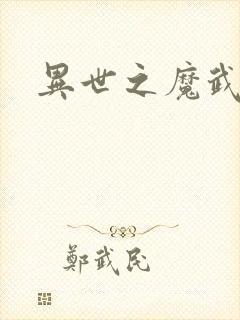 異世之魔武
鄭武民